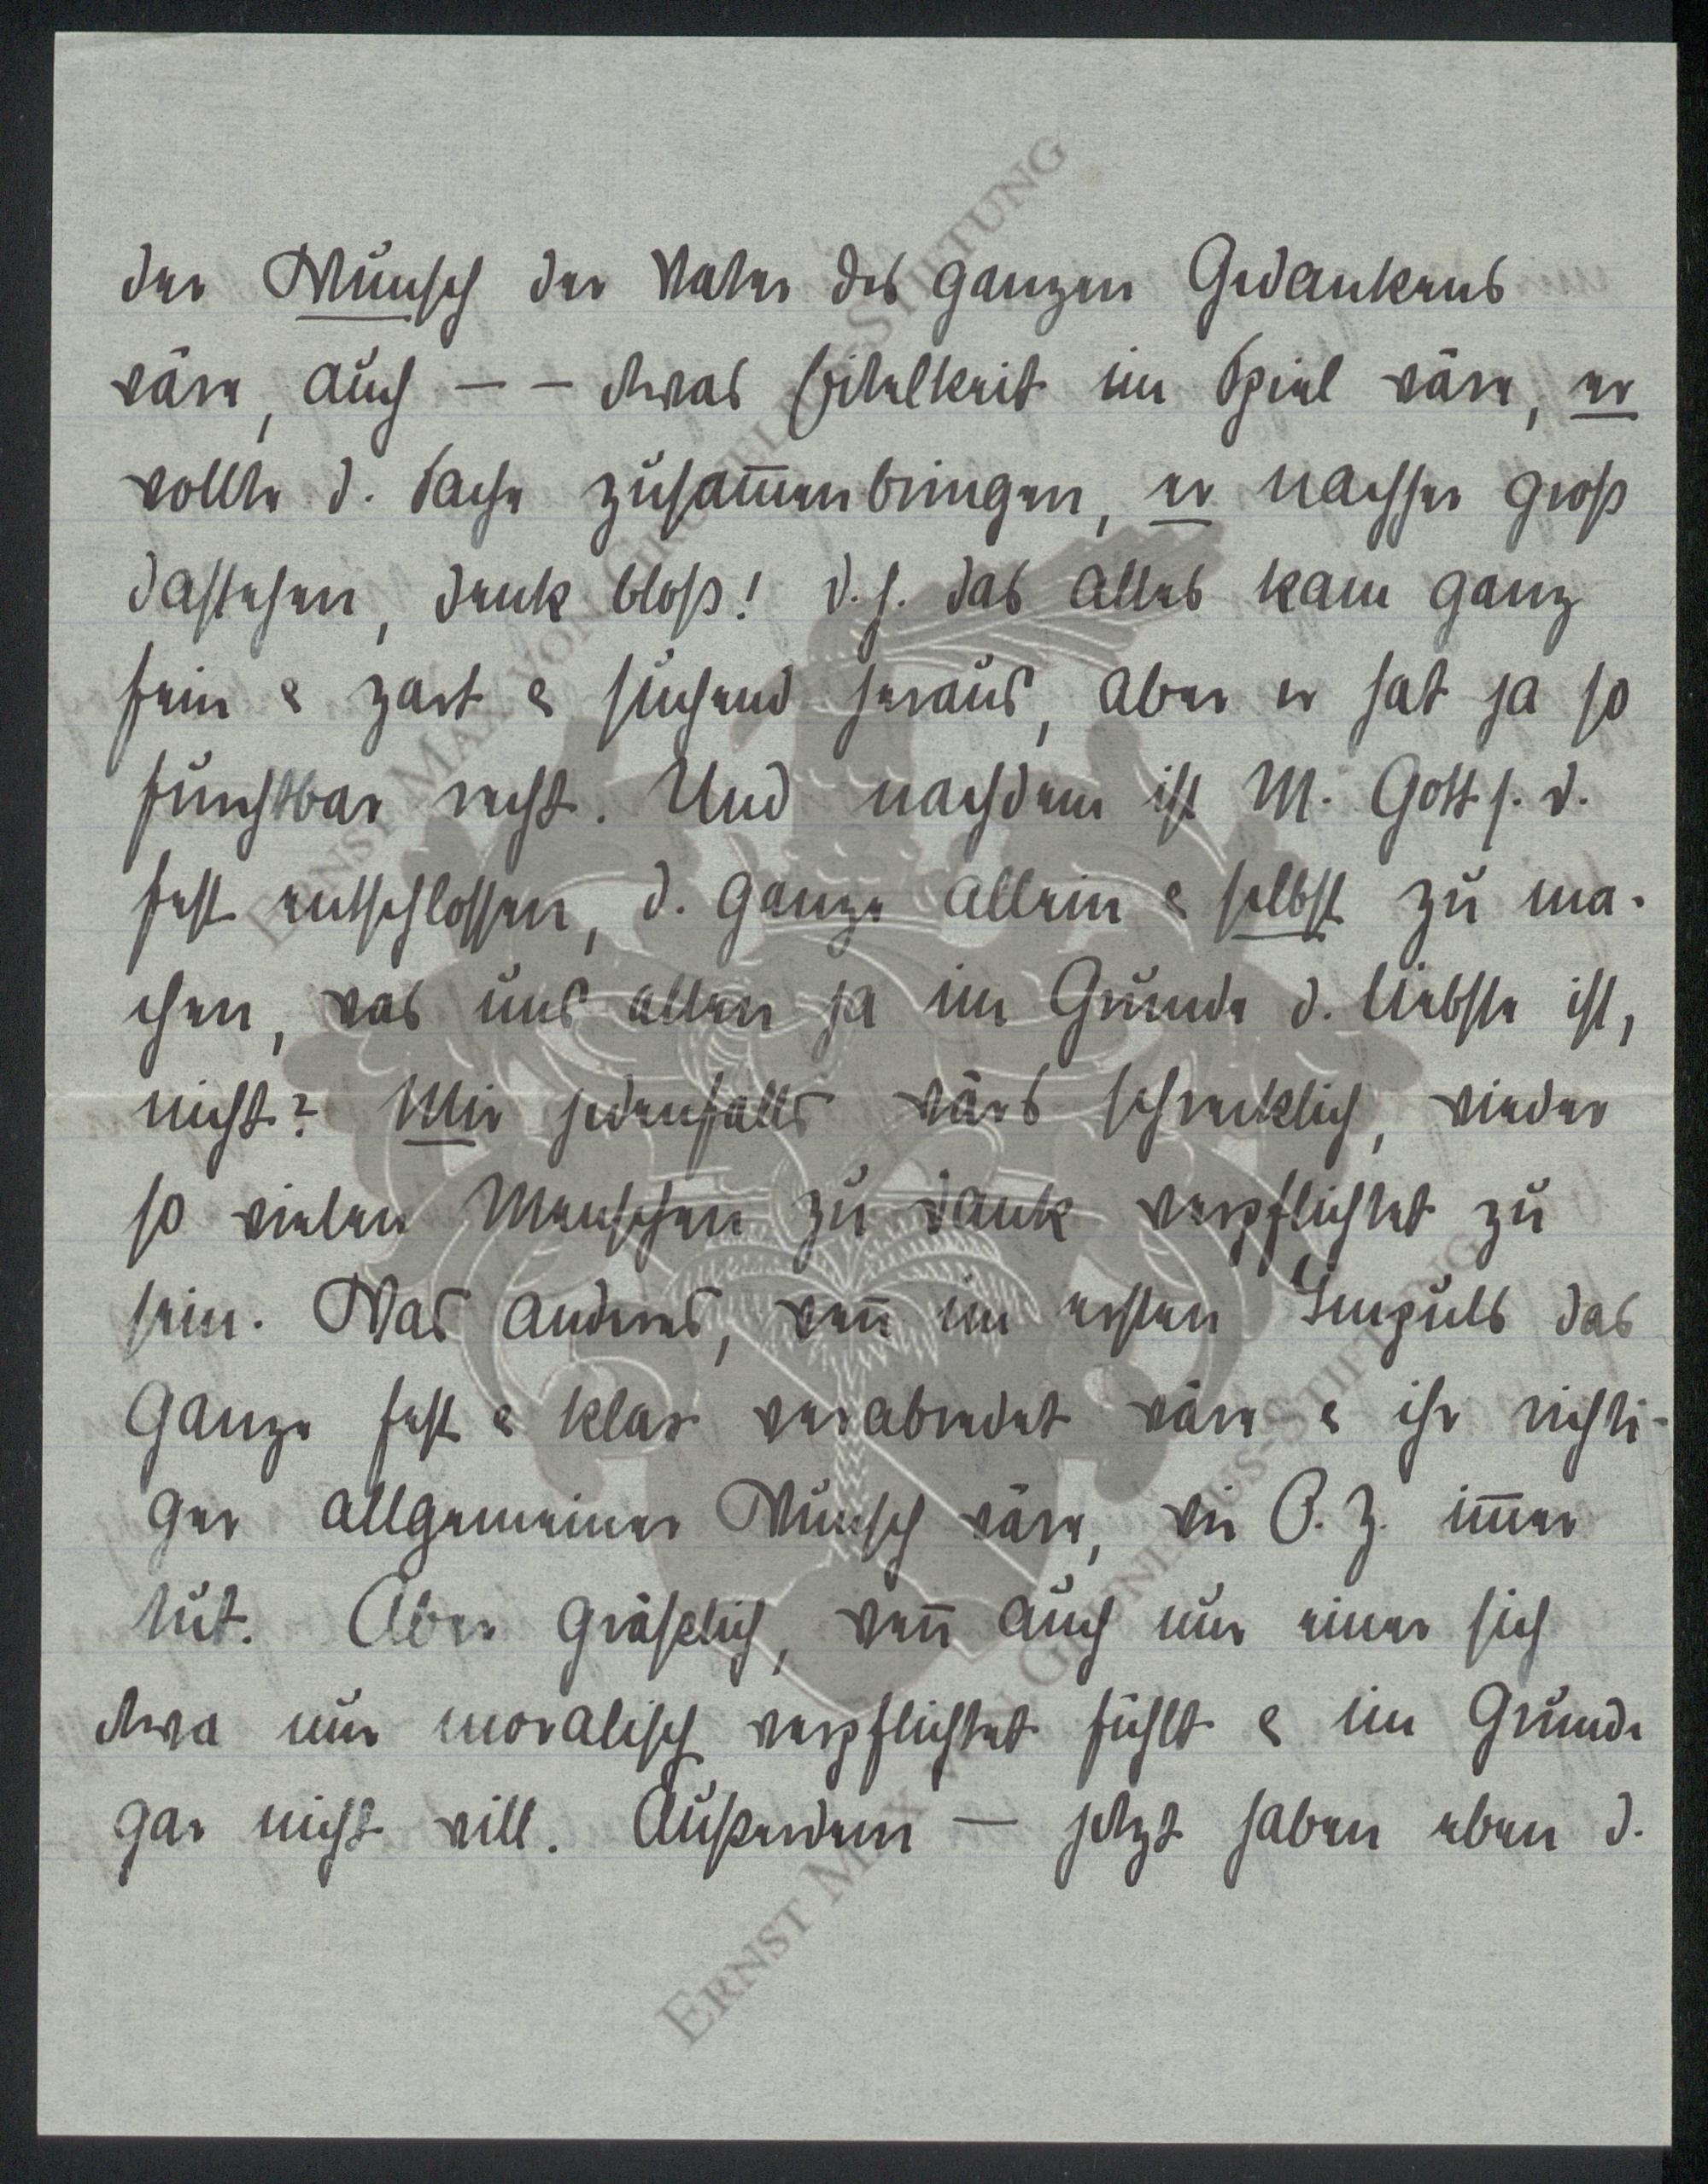 der Wunsch der Vater des ganzen Gedankens
wäre, auch – – etwas Eitelkeit im Spiel wäre, er
wollte d. Sache zusam̅enbringen, er nachher groß
dastehen, denk bloß! d. h. das alles kam ganz
fein & zart & suchend heraus, aber er hat ja so
furchtbar recht. Und nachdem ist M. Gott s. d.
fest entschlossen, d. Ganze allein & selbst zu ma-
chen, was uns allen ja im Grunde d. liebste ist,
nicht? Mir jedenfalls wärs schrecklich, wieder
so vielen Menschen zu Dank verpflichtet zu
sein. Was anderes, wen̅ im ersten Impuls das
Ganze fest & klar verabredet wäre & ihr richti-
ger allgemeiner Wunsch wäre, wie P. Z. im̅er
tut. Aber gräßlich, wen̅ auch nur einer sich
etwa nur moralisch verpflichtet fühlt & im Grunde
gar nicht will. Außerdem – jetzt haben eben d.
ERNST MAX VON GRUNELIUS-STIFTUNG
ERNST MAX VON GRUNELIUS-STIFTUNG